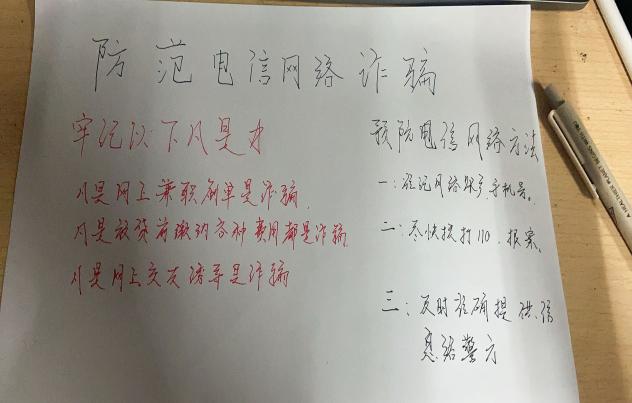 防范电信网络诈骗
牢记以下凡是为
凡是网上兼职刷单是诈骗.
凡是放贷前缴纳各种费用都是诈骗.
凡是网上交友诱
是诈骗
预防电信网络方法
一:准记网络账号,手机号。
二:尽快拨打110,报案。
三:及时准确提供信
息给警方